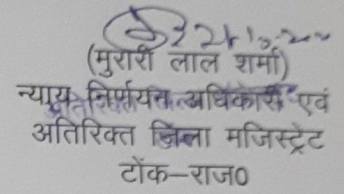 (मुरारी लाल शर्मा)
न्याय निर्णयन अधिकारी एवं
अतिरिक्त जिला मजिस्ट्रेट
टोंक–राज0